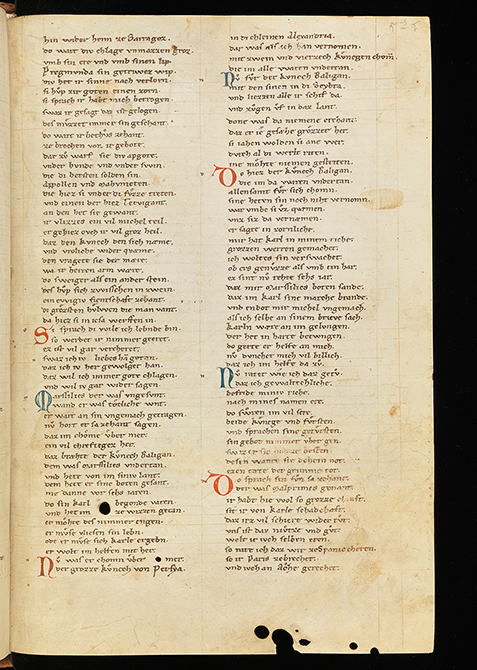 hin wider heim ze Sarragoz.
do wart div chlage vnmazzen groz.
vmb sin ere vnd vmb sinen lip.
Pregmvnda sin getriwez wip.
div het ir sinne nach verlorn.
si hvp zir goten einen zorn.
si sprach ir habt mich betrogen.
swaz ir gesagt daz ist gelogen.
des mvzzet immer sin geschant.
do wart ir bethvs zehant.
ze brochen vor ir gebote.
dar zv warf sie div apgote.
vnder hvnde vnd vnder swin.
die di besten solden sin.
Appollen vnd Mahmeten.
die hiez si vnder di fvzze treten.
vnd einen der hiez Tervigant.
an den het sie gewant.
ir vlizzes ein vil michel teil.
er gehiez ovch ir vil groz heil.
daz den kvnech den sich næme.
vnd vroliche wider qvæme.
den vragete sie der mære.
wa ir herren arm wære.
do sweiger als ein ander stein.
des hvp sich zwisschen in zwein.
ein ewigiv fientschaft zehant.
di grozsten hvlden die man vant.
da hiez si in isa werffen in.
Si sprach di wile ich lebnde bin.
so werdet ir nimmer geeret.
ez ist vil gar vercheret.
swaz ich iv liebes han getan.
daz ich iv her gewolget han.
daz wil ich immer gote chlagen.
vnd wil iv gar wider sagen
Marsilies der was vngesvnt.
wand er was tœtliche wnt.
er wart an sin vngemach getragen.
nv hort er sa zehant sagen.
daz im chome vber mer.
ein vil chreftigez her.
daz bræhte der kvnech Baligan.
dem was Marsilies vndertan.
vnd hete von im siniv lant.
dem hete er sine boten gesant.
me danne vor sehs iaren.
do sin Karl begonde varen
vnd het im ze wizzen getan.
er mohte des nimmer engen.
er mvse vliesen sin lebn.
ode er mvse sich Karle ergebn.
er wolt im helfen mit her.
Nv was er chomen vber mer.
der grozze kvnech von Persya.
in di chleinen Alexandria.
dar was als ich han vernomen.
mit zwein vnd vierzech kvnegen chomen.
die im alle waren vndertan.
Nv fvr der kvnech Baligan.
mit den sinen in di
vnd liezzen alle ir schif da.
vnd zvgen vf in daz lant.
done was da niemene erchant.
daz er ie gesahe grozzer her.
si sahen wolden si ane wer.
dvrch al di werlt riten.
ine mohte niemen gestriten.
Do hiez der kvnech Baligan.
die im da waren vndertan.
allensamt fvr sich chomen.
sine hetten sin noch niht vernomen.
war vmbe si vz qvæmen.
vnz siz da vernamen.
er sagte in zornliche.
mir hat Karl in minem riche.
grozzen werren gemachet.
ich woltes sin versvachet.
ob ers genvzze als vmb ein har.
ez sint nv rehte sehs iar.
daz mir Marsilies boten sande.
daz im Karl sine marche brande.
vnd endot mir michel vngemach.
als ich selbe an sinem brieve sach.
Karln wære an im gelvngen.
der het in harte betwngen.
do gerter er helfe an mich.
nv dvnchet mich vil billich.
daz ich im helfe da zv.
Nv ratet wie ich daz getv.
daz ich gewaltechliche.
besende miniv riche.
nach mines namen ere.
do swren im vil sere.
beide kvnege vnd fvrsten.
vnd sprachen sine getvrsten.
sin gebot nimmer vber gen.
swaz er sie mohte besten
desin wante sie dehein not.
ezen tæte der grimme tot.
Do sprach sin svn sa zehant.
der was Malprimes genant.
ir habt hie wol so grozze chraft.
sit ir von Karle schadehaft.
daz irz vil schiere wider tvt.
vns ist daz nvtze vnd gvt.
welt ir vch selben eren.
so sult ich daz wir ze Dspanie cheren.
so ir Paris zebrechet.
vnd iwch an Ache gerechet.